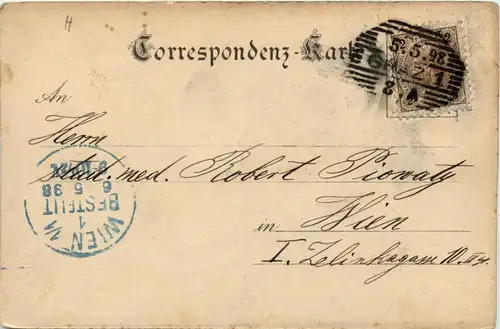 H
Correspondenz-Karte
An
Herrn
stud. med. Robert Piowaty
in Wien
I. Zelinkagasse 10.
WIEN 1/1
BESTELLT
6 5 98
5. 98